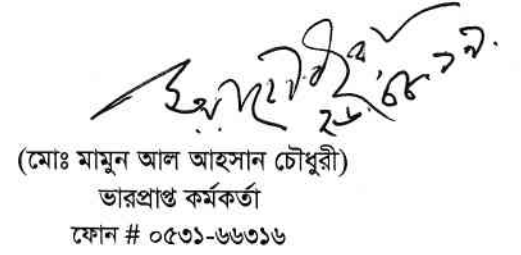 (মোঃ মামুন আল আহসান চৌধুরী)
ভারপ্রাপ্ত কর্মকর্তা
ফোন # ০৫৩১-৬৬৩১৬